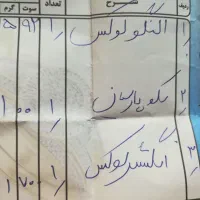 ردیف شرح تعداد سوت گرم
۱ النگو لوکس ۱ ۵۹۲
۲ پارسیان ۱ ۱۰۰
۳ انگشتر لوکس ۱ ۱۷۰۰